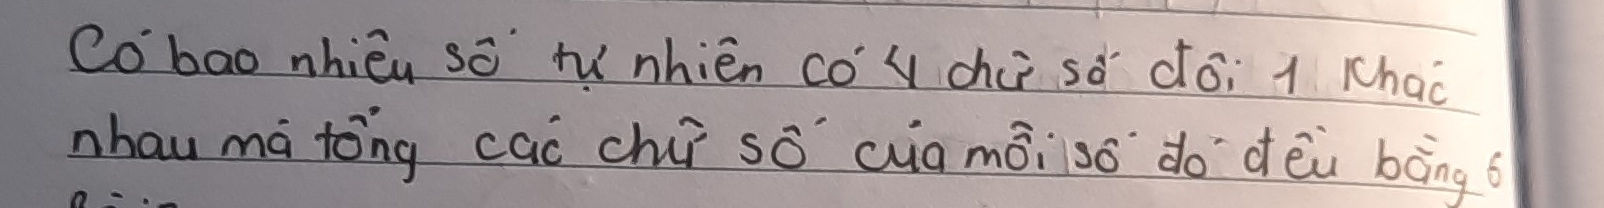 Có bao nhiêu số tự nhiên có 4 chữ số đôi 1 khác
nhau mà tổng các chữ số của mỗi số đó đều bằng 6